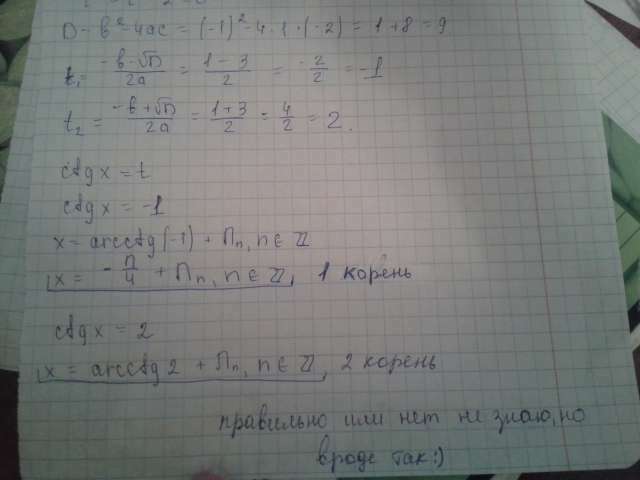 D = b² - 4ac = (-1)² - 4 · 1 · (-2) = 1 + 8 = 9
t₁ = (-b - √D)/2a = (1 - 3)/2 = -2/2 = -1
t₂ = (-b + √D)/2a = (1 + 3)/2 = 4/2 = 2.
ctg x = t
ctg x = -1
x = arcctg (-1) + Пn, n ∈ Z
x = -П/4 + Пn, n ∈ Z, 1 корень
ctg x = 2
x = arcctg 2 + Пn, n ∈ Z, 2 корень
правильно или нет не знаю, но
вроде так :)